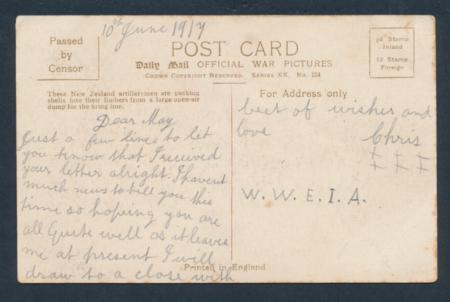 10th June 1917
Passed
by
Censor
POST CARD
Daily Mail OFFICIAL WAR PICTURES
CROWN COPYRIGHT RESERVED. SERIES XX. No. 154
½d Stamp
Inland
1d Stamp
Foreign
These New Zealand artillerymen are packing
shells into their limbers from a large open-air
dump for the firing line.
Dear May
Just a few lines to let
you know that I received
your letter alright. I havent
much news to tell you this
time so hoping you are
all Quite well as it leaves
me at present I will
draw to a close with
For Address only
best of wishes and
love
Chris
W.W.E.I.A.
Printed in England